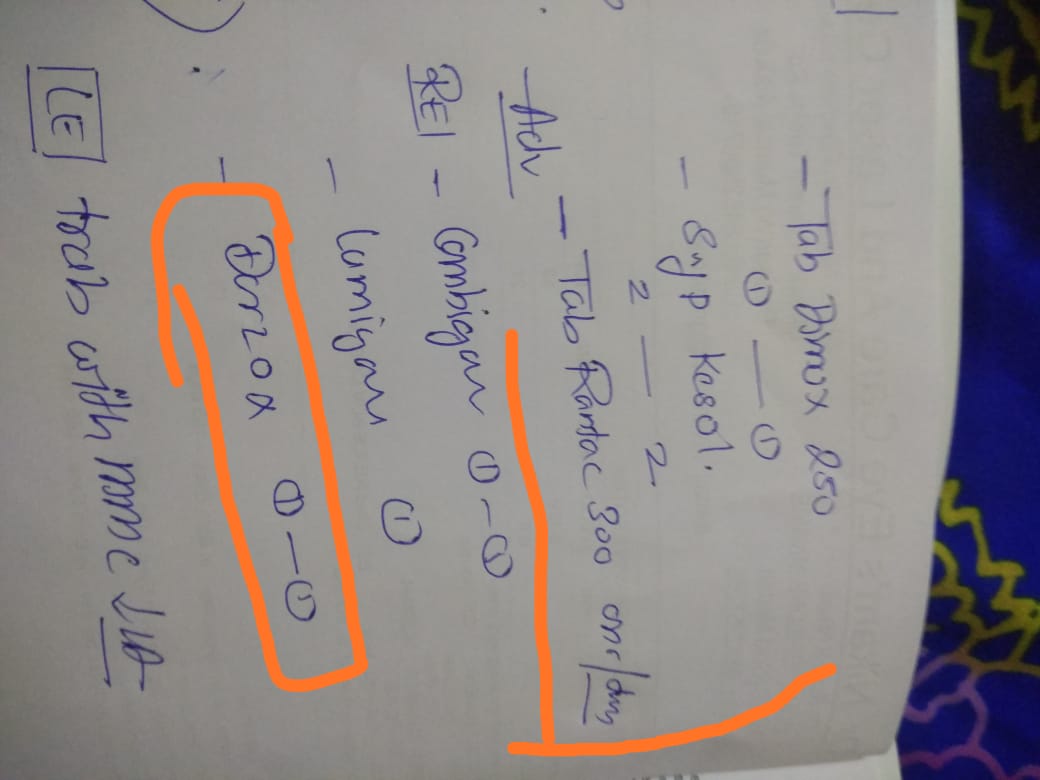 - Tab Dimox 250
① — ①
- Syp Kesol.
2 — 2
Adv - Tab Rantac 300 onc/day
RE - Combigan ①-①
- Lumigan ①
- Dorzox ①-①
LE trab with mmc ↓LA